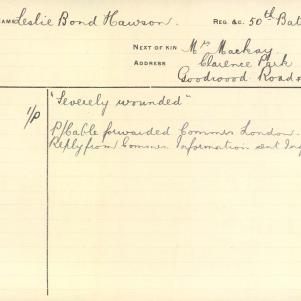 NAME Leslie Bond Hawson. REG. &C. 50th Bat
NEXT OF KIN Mrs Mackay.
ADDRESS Clarence Park
Goodwood Road
"Severely wounded"
1/P
P/Cable forwarded Commrs London.
Reply from Commrs Information sent